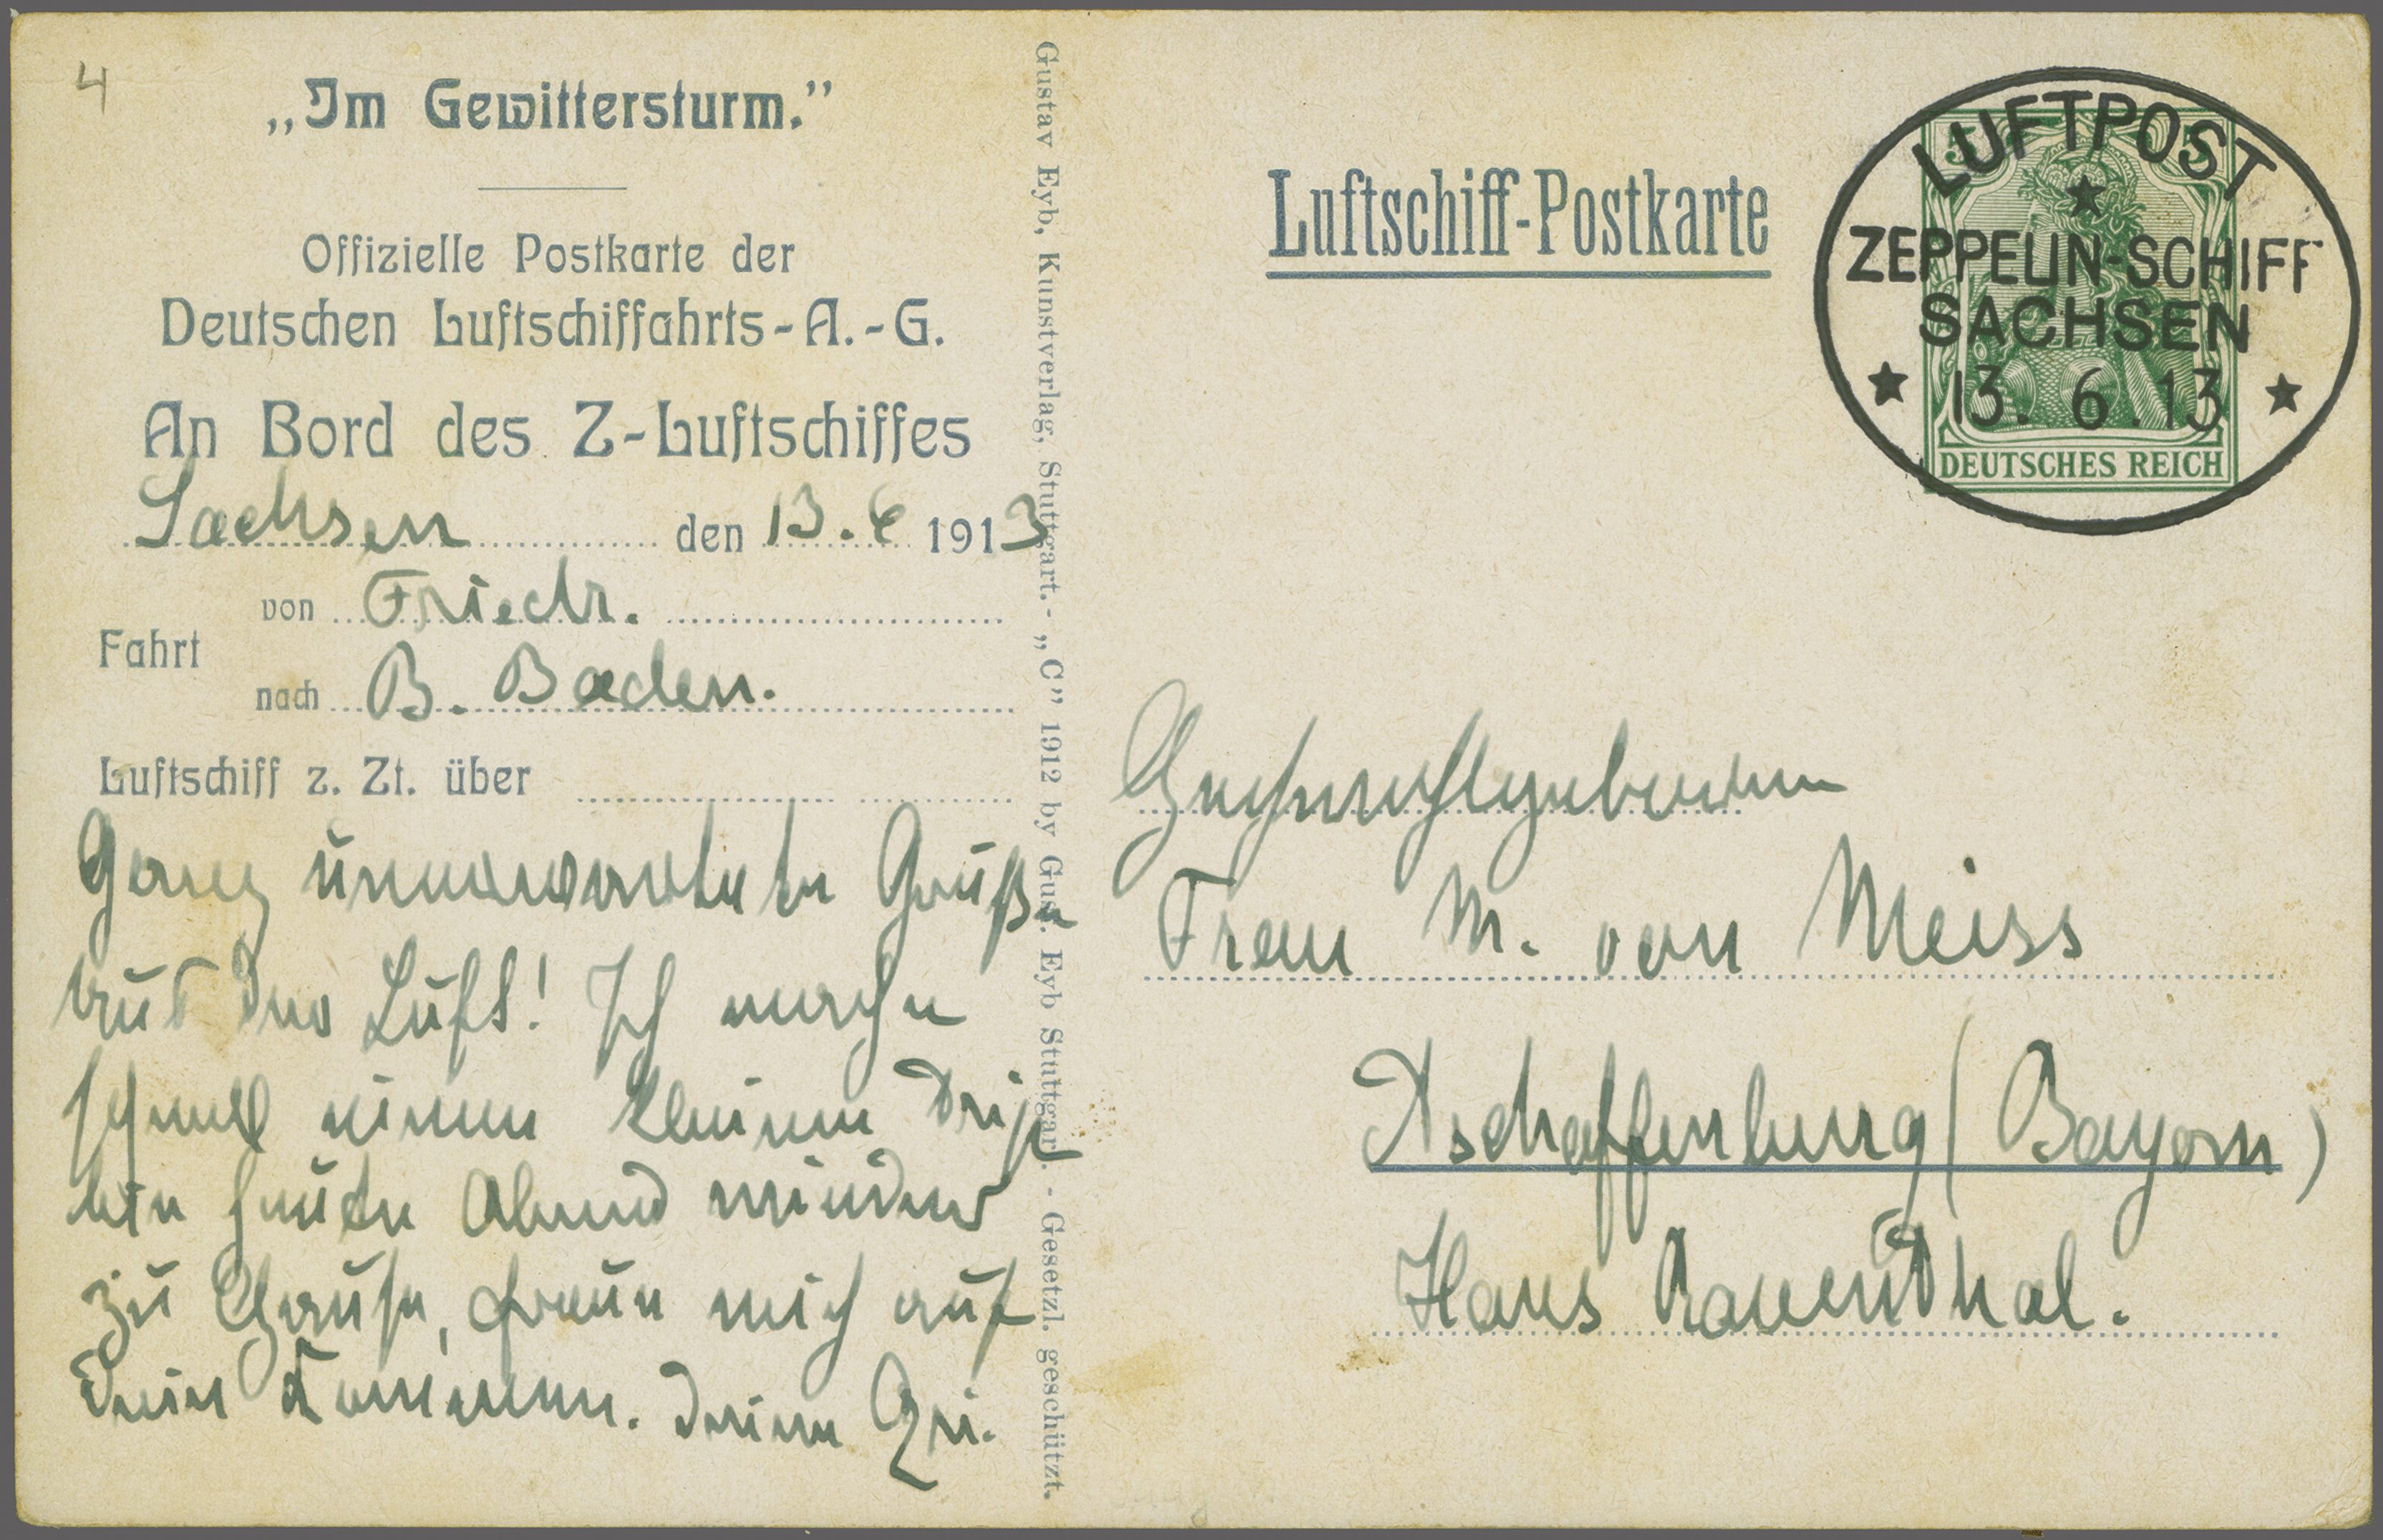 4
„Im Gewittersturm.”
Offizielle Postkarte der
Deutschen Luftschiffahrts-A.-G.
An Bord des Z-Luftschiffes
Sachsen den 13.6 1913
Fahrt von Friedr.
nach B. Baden.
Luftschiff z. Zt. über
Ganz unerwartete Grüße
aus der Luft! Ich mache
schnell einen kleinen Trip
bin heute Abend wieder
zu Hause, freue mich auf
Dein Kommen. Deine
Gustav Eyb, Kunstverlag, Stuttgart. - „C” 1912 by Gus. Eyb Stuttgart. - Gesetzl. geschützt.
Luftschiff-Postkarte
LUFTPOST
ZEPPELIN-SCHIFF
SACHSEN
13. 6.13
5 5
DEUTSCHES REICH
Hochwohlgeboren
Frau M. von Meiss
Aschaffenburg (Bayern)
Haus Rauenthal.